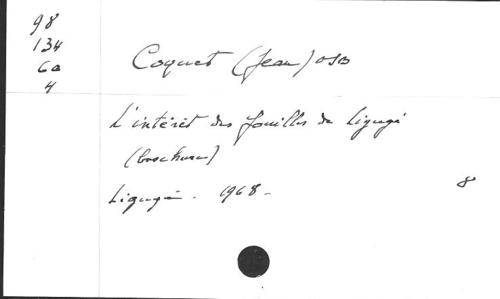 98
134
60
4
Coquet (Jean) OSB
L'intérêt des fouilles de Ligugé
(brochure)
Ligugé. 1968.
8